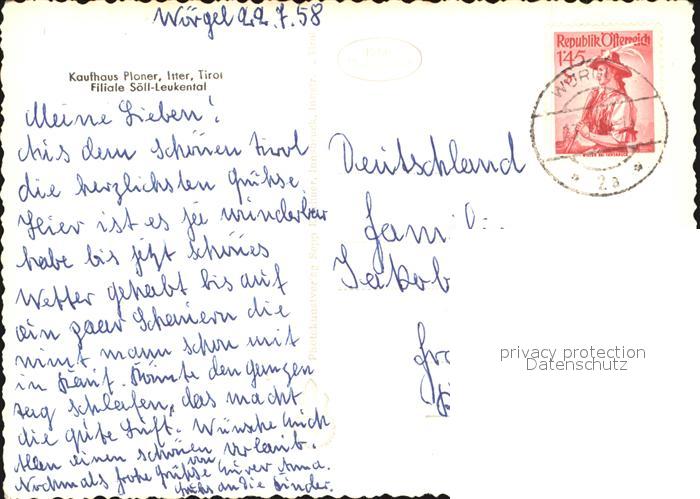 Wörgel 22.7.58
Kaufhaus Ploner, Itter, Tirol
Filiale Söll-Leukental
Meine Lieben!
Aus dem schönen Tirol
die herzlichsten Grühse.
Heier ist es ja wunderbar
habe bis jetzt schönes
Wetter gehabt bis auf
ein paar Schauern die
nimt mann schon mit
in Kauf. Könnte den ganzen
tag schlafen, das macht
die gute Luft. Wünsche Euch
allen einen schönen Urlaub.
Nochmals frohe Grühse von Eurer Anna.
Grühs an die Kinder.
Republik Österreich
1'45
WÖRGL
2a
Deutschland
Fam
Jakob
privacy protection
Datenschutz